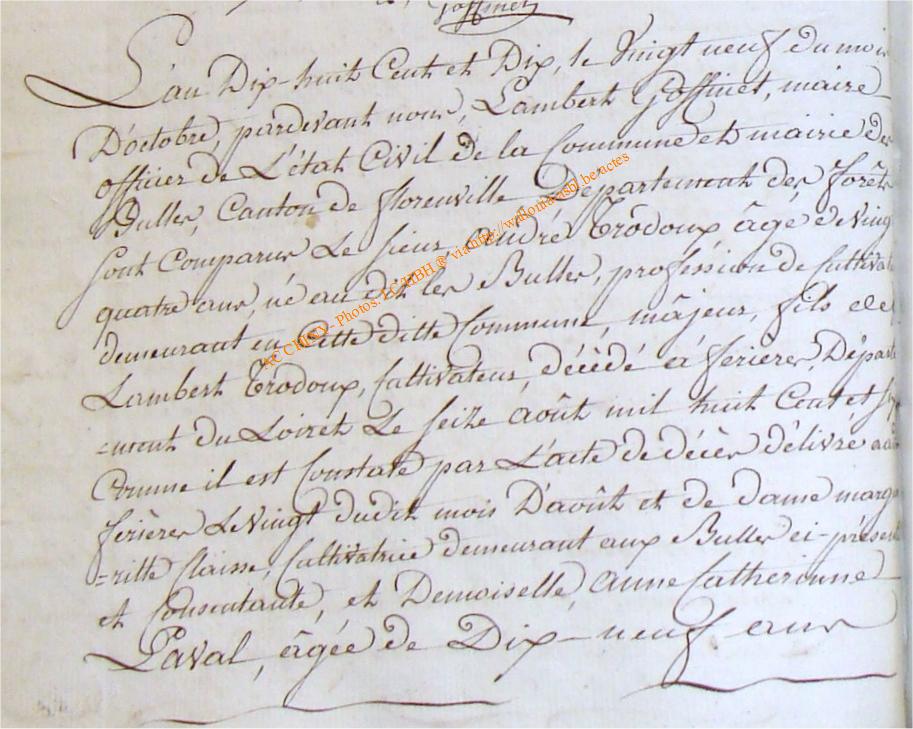 Goffinet
L'au Dix-huit Cent et Dix, le Vingt neuf du mois
D'octobre, pardevant nous, Lambert Goffinet, maire
officier de L'état Civil de la Commune et mairie des
Bulles, Canton de florenville, Département des forêts
sont Comparus Le sieur André Trôdoux âgé de Vingt
quatre ans, né au dit les Bulles, profession de Cultivate
demeurant en Cette ditte Commune, mâjeur, fils de
Lambert Trôdoux, Cultivateur, décédé à ferières, Départe
-ment du Loiret Le seize août mil huit Cent et
Comme il est Constaté par L'acte de décès délivré
ferières Le vingt dudit mois D'août et de dame marga
=ritte Claisse, Cultivatrice demeurant aux Bulles ci-présente
et Consentante, et Demoiselle, anne Catherinne
Laval, âgée de Dix-neuf ans
ACCHIGO - Photos: TCHBH @ via http://walloniaasbl.be/actes